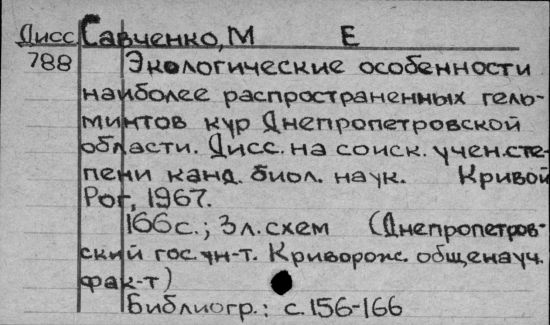 Дисс Савченко, М Е
788 Экологические особенности
наиболее распространенных гель-
минтов кур Днепропетровской
области. Дисс. на соиск. учен.сте-
пени канд. биол. наук. Кривой
Рог, 1967.
166с.; 3л.схем (Днепропетров-
ский гос.ун-т. Криворож. общенауч.
фак-т)
Библиогр.: с.156-166